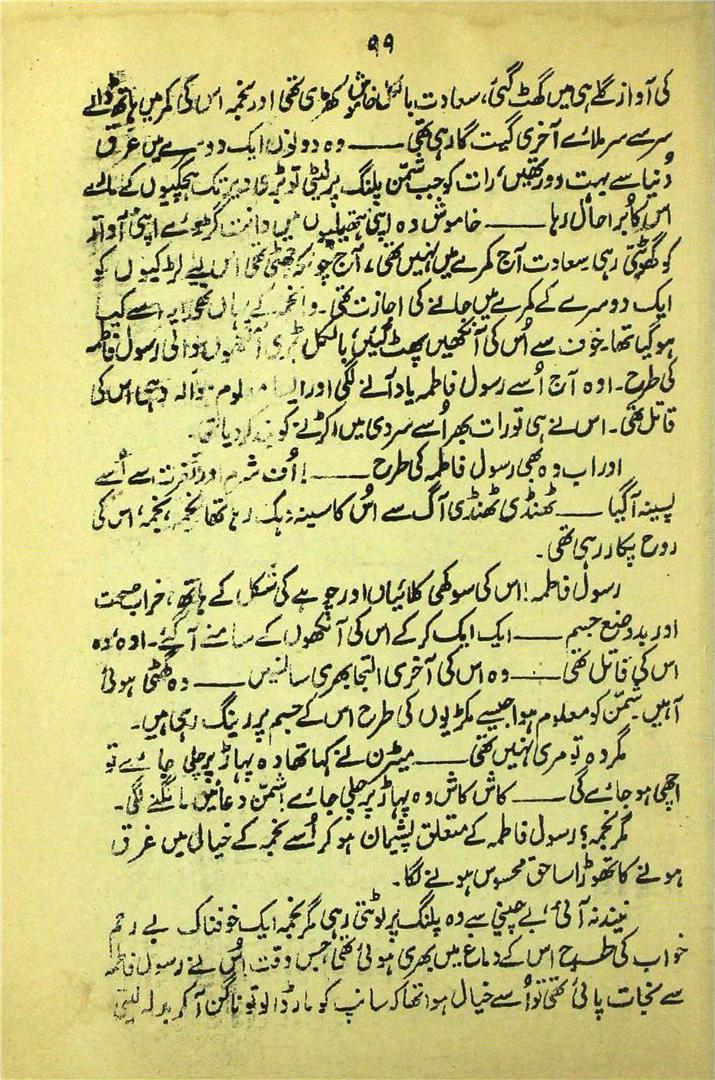 ۹۹
کی آواز گلے ہی میں گھٹ گئی، سعادت بالکل خاموش کھڑی تھی اور نجمہ اس کی کمر میں ہاتھ ڈالے
سر سے سر ملائے آخری گیت گا رہی تھی —— وہ دونوں ایک دوسرے میں غرق
دنیا سے بہت دور تھیں، رات کو جب شمّن پلنگ پر لیٹی تو بڑی دیر تک ہچکیوں کے مارے
اس کا بُرا حال رہا —— خاموش وہ اپنی ہتھیلیوں میں دانت گڑوئے اپنی آواز
کو گھونٹتی رہی۔ سعادت آج کمرے میں نہیں تھی، آج چونکہ چھٹی تھی اس لیے لڑکیوں کو
ایک دوسرے کے کمرے میں جانے کی اجازت تھی۔ نجمہ کے یہاں اسے کیا
ہو گیا تھا۔ خوف سے اُس کی آنکھیں پھٹ گئیں، بالکل آنکھوں والی رسول فاطمہ
کی طرح۔ اوہ آج اُسے رسول فاطمہ یاد آنے لگی اور ایسا معلوم ہوا کہ وہی اس کی
قاتل تھی۔ اس نے ہی تو رات بھر اُسے سردی میں اکڑنے کو
اور اب وہ بھی رسول فاطمہ کی طرح ——! اُف شرم اور نفرت سے اُسے
پسینہ آگیا —— ٹھنڈی ٹھنڈی آگ سے اُس کا سینہ دہک رہا تھا نجمہ، نجمہ، اس کی
روح پکار رہی تھی۔
رسول فاطمہ! اس کی سوکھی کلائیاں اور چوہے کی شکل کے ہاتھ، خراب صحت
اور بدوضع جسم —— ایک ایک کر کے اس کی آنکھوں کے سامنے آگئے۔ اوہ، وہ
اس کی قاتل تھی —— وہ اس کی آخری التجا بھری سانسیں —— وہ گھٹی ہوئی
آہیں شمّن کو معلوم ہوا جیسے مکڑیوں کی طرح اس کے جسم پر رینگ رہی ہیں۔
مگر وہ تو مری نہیں تھی —— میٹرن نے کہا تھا وہ پہاڑ پر چلی جائے تو
اچھی ہو جائے گی —— کاش کاش وہ پہاڑ پر چلی جائے! شمّن دعائیں مانگنے لگی۔
مگر نجمہ؟ رسول فاطمہ کے متعلق پشیمان ہو کر اُسے نجمہ کے خیال میں غرق
ہونے کا تھوڑا سا حق محسوس ہونے لگا۔
نیند نہ آئی، بے چینی سے وہ پلنگ پر لوٹتی رہی مگر نجمہ ایک خوفناک بے رحم
خواب کی طرح اس کے دماغ میں بھری ہوئی تھی جس وقت اُس نے رسول فاطمہ
سے نجات پائی تھی تو اُسے خیال ہوا تھا کہ سانپ کو مار ڈالو تو ناگن آکر بدلہ لیتی